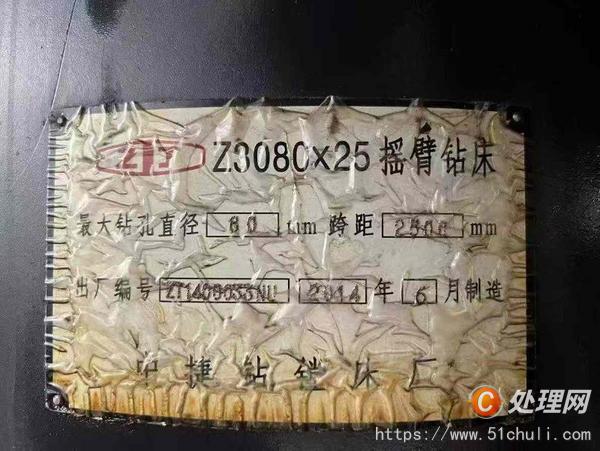 Z3080×25 摇臂钻床
最大钻孔直径 80 mm 跨距 2500 mm
出厂编号 2014 年 6 月制造
中捷钻镗床厂
处理网
https://www.51chuli.com